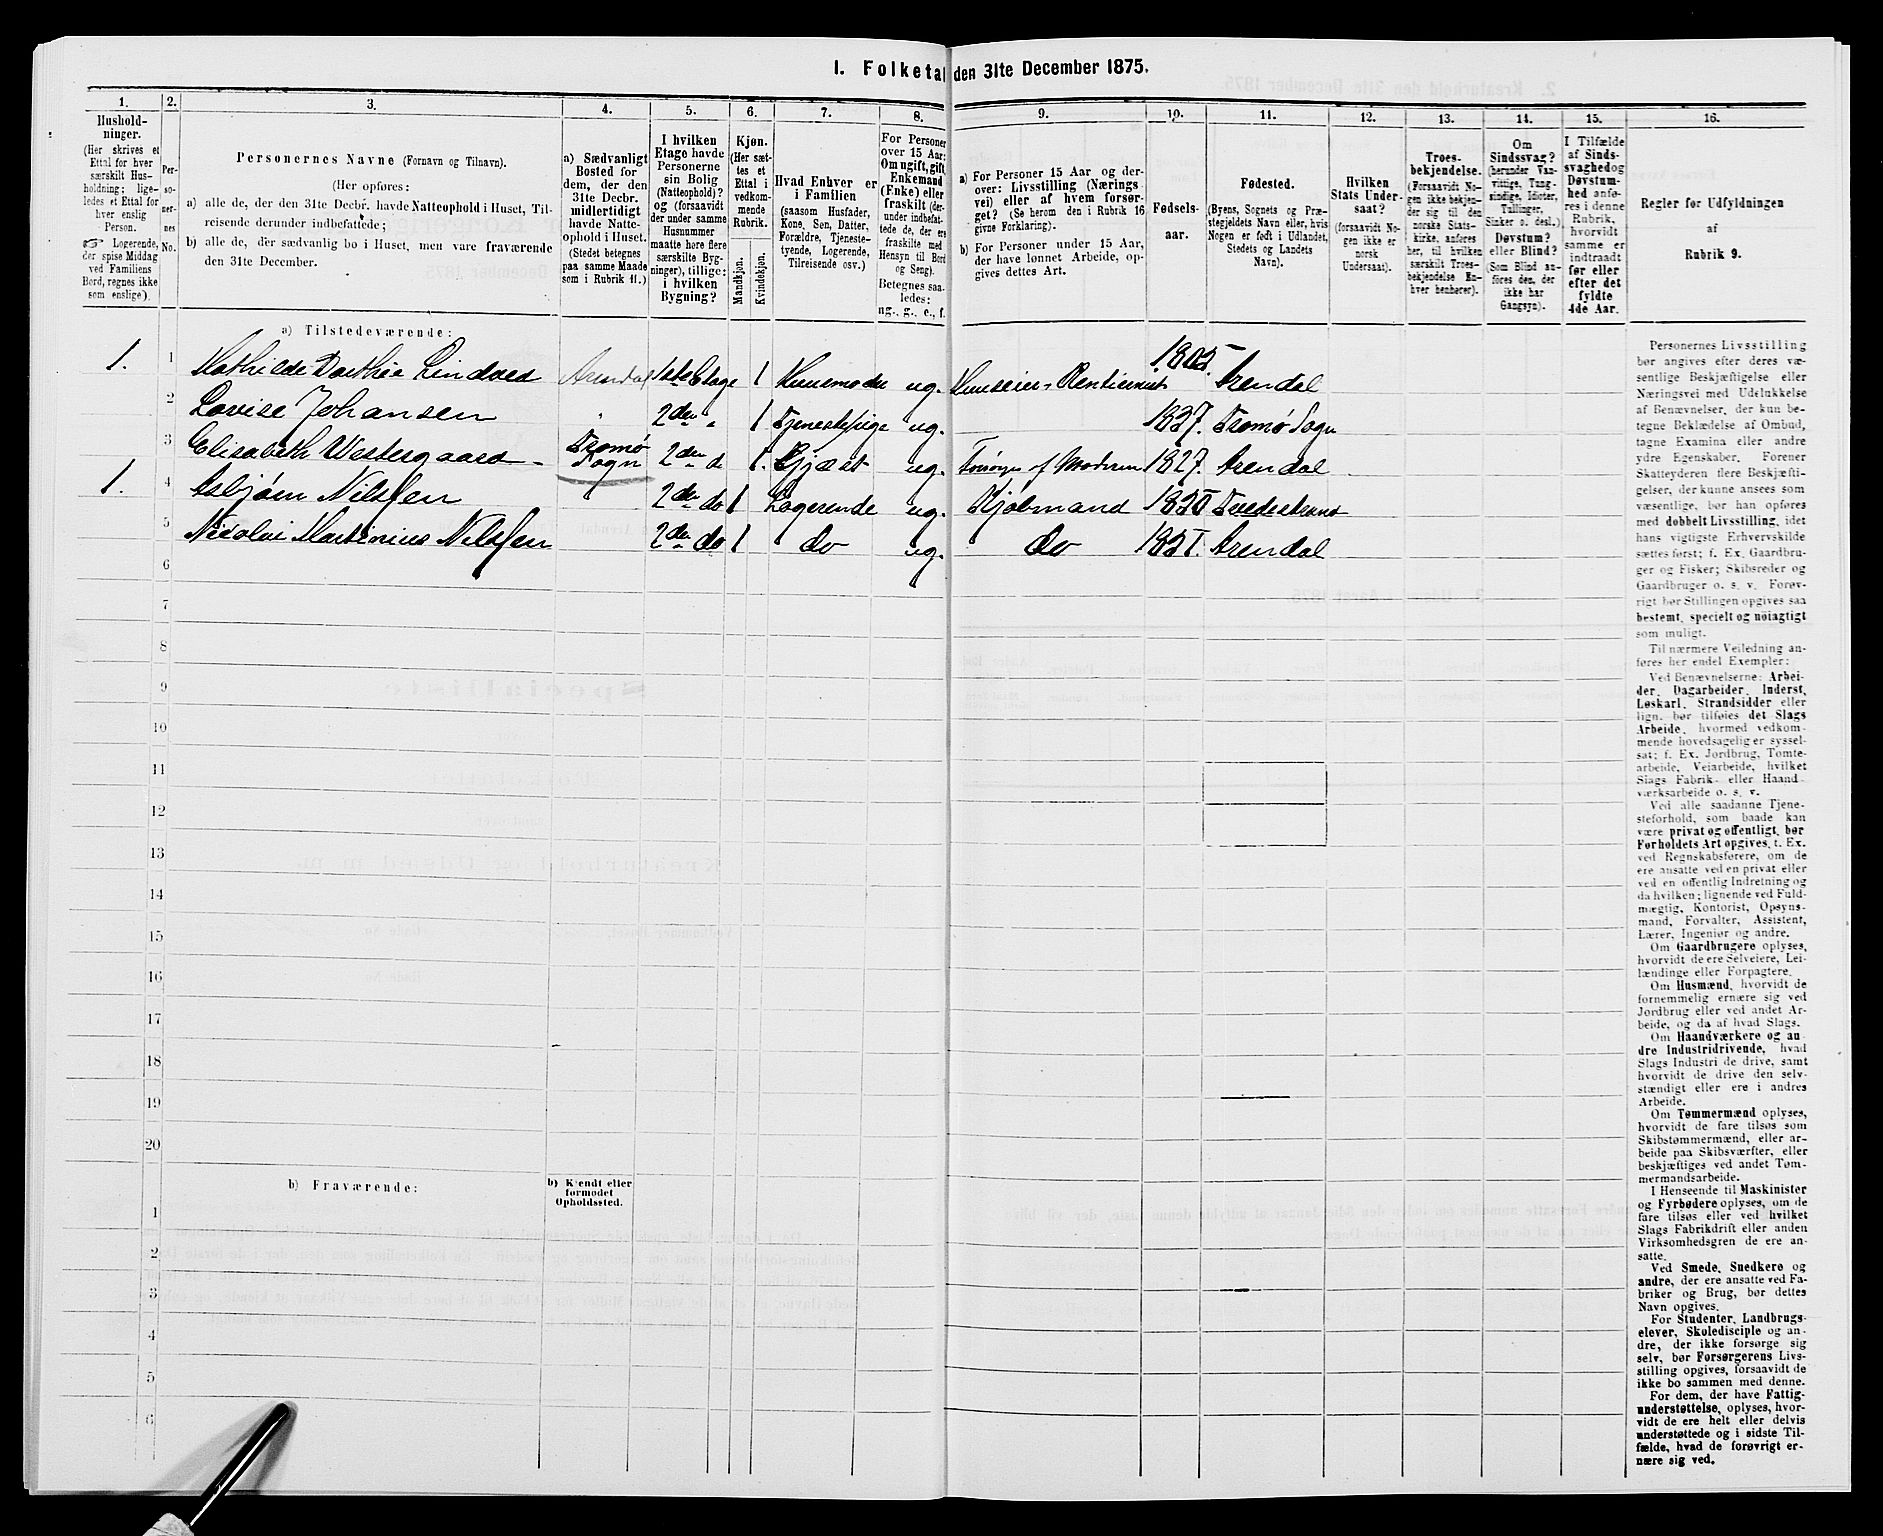 1. Folketal den 31te December 1875.
1.
Hushold-
ninger.
(Her skrives et
Ettal for hver
særskilt Hus-
holdning; lige-
ledes et Ettal for
hver enslig
Person.
Logerende,
der spise Middag
ved Familiens
Bord, regnes ikke
som enslige).
2.
Per-
so-
ner-
nes
No.
3.
Personernes Navne (Fornavn og Tilnavn).
(Her opføres:
a) alle de, der den 31te Decbr. havde Natteophold i Huset, Til-
reisende derunder indbefattede;
b) alle de, der sædvanlig bo i Huset, men vare fraværende
den 31te December.
4.
a) Sædvanligt
Bosted for
dem, der den
31te Decbr.
midlertidigt
havde Natte-
ophold i Huset.
(Stedet betegnes
paa samme Maade
som i Rubrik 11.)
5.
I hvilken
Etage havde
Personerne
sin Bolig
(Natteophold)?
og (forsaavidt
der under samme
Husnummer
maatte høre flere
særskilte Byg-
ninger), tillige:
i hvilken
Bygning?
6.
Kjøn.
(Her sæt-
tes et
Ettal i
vedkom-
mende
Rubrik.
Mandkjøn.
Kvindekjøn.
7.
Hvad Enhver er
i Familien
(saasom Husfader,
Kone, Søn, Datter,
Forældre, Tjeneste-
tyende, Logerende,
Tilreisende osv.)
8.
For Personer
over 15 Aar:
Om ugift, gift,
Enkemand
(Enke) eller
fraskilt (der-
under indbefat-
tede de, der ere
fraskilte med
Hensyn til Bord
og Seng).
Betegnes saa-
ledes:
ug., g., e., f.
9.
a) For Personer 15 Aar og der-
over: Livsstilling (Nærings-
vei) eller af hvem forsør-
get? (Se herom den i Rubrik 16
givne Forklaring).
b) For Personer under 15 Aar,
der have lønnet Arbeide, op-
gives dettes Art.
10.
Fødsels-
aar.
11.
Fødested.
(Byens, Sognets og Præ-
stegjeldets Navn eller, hvis
Nogen er født i Udlandet,
Stedets og Landets
Navn).
12.
Hvilken
Stats Under-
saat?
(forsaavidt No-
gen ikke er
norsk
Undersaat).
13.
Troes-
bekjendelse.
(Forsaavidt No-
gen ikke bekjen-
der sig til den
norske Stats-
kirke, anføres
her, til hvilken
særskilt Troes-
bekjendelse En-
hver henhører).
14.
Om
Sindssvag?
(herunder Van-
vittige, Tung-
sindige, Idioter,
Tullinger,
Sinker o. desl.)
Døvstum?
eller Blind?
(Som Blind an-
føres den, der
ikke har
Gangsyn).
15.
I Tilfælde
af Sinds-
svaghed og
Døvstum-
hed anfø-
res i denne
Rubrik,
hvorvidt
samme er
indtraadt
før eller
efter det
fyldte
4de Aar.
16.
Regler for Udfyldningen
af
Rubrik 9.
a) Tilstedeværende:
1. 1 Mathilde Dorthea Lindved Arendal 1ste Etage 1 Huusmoder ug. Huuseier & Rentierist 1802. Arendal
2 Lovise Johansen " 2den " 1 Tjenestepige ug. 1837. Tromø Sogn
3 Elisabeth Westergaard Tromø Sogn 2den do 1. Gjæst ug. Forsørges af Moderen 1827. Arendal
1. 4 Asbjørn Nilssen 2den do 1 Logerende ug. Kjøbmand Tvedestrand
5 Nicolai Martinius Nilssen 2den do 1 do ug. do Arendal
6
7
8
9
10
11
12
13
14
15
16
17
18
19
20
b) Fraværende:
b) Kjendt eller
formodet
Opholdssted.
1
2
3
4
5
6
Personernes Livsstilling
bør angives efter deres væ-
sentlige Beskjæftigelse eller
Næringsvei med Udelukkelse
af Benævnelser, der kun be-
tegne Beklædelse af Ombud,
tagne Examina eller andre
ydre Egenskaber. Forener
Skatteyderen flere Beskjæfti-
gelser, der kunne ansees som
væsentlige, bør han opføres
med dobbelt Livsstilling, idet
hans vigtigste Erhvervskilde
sættes først; f. Ex. Gaardbru-
ger og Fisker; Skibsreder og
Gaardbruger o. s. v. Forøv-
rigt bør Stillingen opgives saa
bestemt, specielt og nøiagtigt
som muligt.
Til nærmere Veiledning an-
føres her endel Exempler:
Ved Benævnelserne: Arbei-
der, Dagarbeider, Inderst,
Løskarl, Strandsidder eller
lign. bør tilføies det Slags
Arbeide, hvormed vedkom-
mende hovedsagelig er syssel-
sat; f. Ex. Jordbrug, Tomte-
arbeide, Veiarbeide, hvilket
Slags Fabrik- eller Haand-
værksarbeide o. s. v.
Ved alle saadanne Tjene-
steforhold, som baade kan
være privat og offentligt, bør
Forholdets Art opgives, f. Ex.
ved Regnskabsførere, om de
ere ansatte ved en privat eller
ved en offentlig Indretning og
da hvilken; lignende ved Fuld-
mægtig, Kontorist, Opsyns-
mand, Forvalter, Assistent,
Lærer, Ingeniør og andre.
Om Gaardbrugere oplyses,
hvorvidt de ere Selveiere, Lei-
lændinge eller Forpagtere.
Om Husmænd, hvorvidt de
fornemmelig ernære sig ved
Jordbrug eller ved andet Ar-
beide, og da af hvad Slags.
Om Haandværkere og an-
dre Industridrivende, hvad
Slags Industri de drive, samt
hvorvidt de drive den selv-
stændigt eller ere i andres
Arbeide.
Om Tømmermænd oplyses,
hvorvidt de fare tilsøs som
Skibstømmermænd, eller ar-
beide paa Skibsværfter, eller
beskjæftiges ved andet Tøm-
mermandsarbeide.
I Henseende til Maskinister
og Fyrbødere oplyses, om de
fare tilsøs eller ved hvilket
Slags Fabrikdrift eller anden
Virksomhedsgren de ere an-
satte.
Ved Smede, Snedkere og
andre, der ere ansatte ved Fa-
briker og Brug, bør dettes
Navn opgives.
For Studenter, Landbrugs-
elever, Skoledisciple og an-
dre, der ikke forsørge sig
selv, bør Forsørgerens Livs-
stilling opgives, forsaavidt de
ikke bo sammen med denne.
For dem, der have Fattig-
understøttelse, oplyses, hvor-
vidt de ere helt eller delvis
understøttede og i sidste Til-
fælde, hvad de forøvrigt er-
nære sig ved.